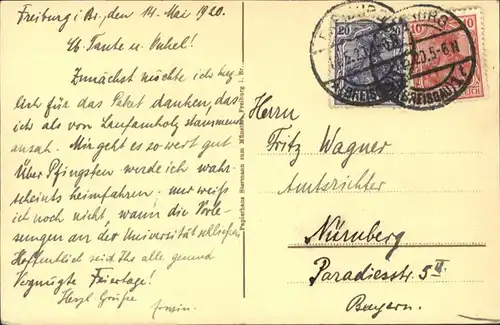 Freiburg i Br., den 14. Mai 1920.
Lb. Tante u. Onkel!
Zunächst möchte ich herz
lich für das Paket danken, das
ich als von Laufamholz stammend
ansah. Mir geht es so weit gut
Über Pfingsten werde ich wahr-
scheinl. heimfahren. nur weiß
ich noch nicht, wann die Vorle-
sungen an der Universität schließen
Hoffentlich seid Ihr alle gesund
Vergnügte Feiertage!
Herzl Grüße
Erwin.
Papierhaus Boermann zum Münster, Freiburg i. Br.
20
10
Herrn
Fritz Wagner
Amtsrichter
Nürnberg
Paradiesstr. 5 II
Bayern.